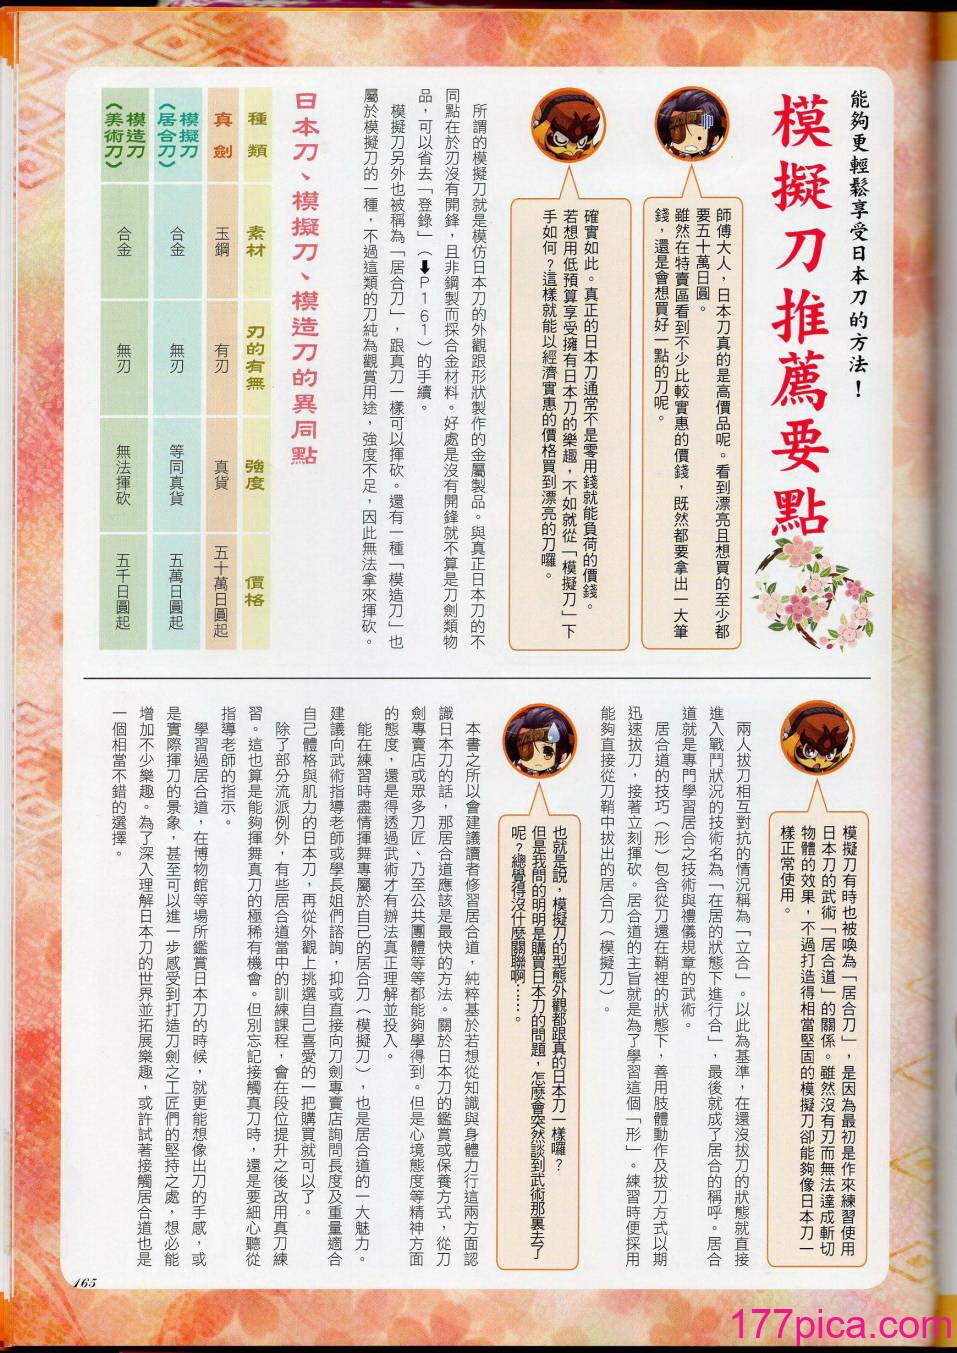 能夠更輕鬆享受日本刀的方法！
模擬刀推薦要點
師傅大人，日本刀真的是高價品呢。看到漂亮且想買的至少都
要五十萬日圓。
雖然在特賣區看到不少比較實惠的價錢，既然都要拿出一大筆
錢，還是會想買好一點的刀呢。
確實如此。真正的日本刀通常不是零用錢就能負荷的價錢。
若想用低預算享受擁有日本刀的樂趣，不如就從「模擬刀」下
手如何？這樣就能以經濟實惠的價格買到漂亮的刀囉。
所謂的模擬刀就是模仿日本刀的外觀跟形狀製作的金屬製品。與真正日本刀的不
同點在於刃沒有開鋒，且非鋼製而採合金材料。好處是沒有開鋒就不算是刀劍類物
品，可以省去「登錄」（➡P161）的手續。
模擬刀另外也被稱為「居合刀」，跟真刀一樣可以揮砍。還有一種「模造刀」也
屬於模擬刀的一種，不過這類的刀純為觀賞用途，強度不足，因此無法拿來揮砍。
日本刀、模擬刀、模造刀的異同點
種類 素材 刃的有無 強度 價格
真劍 玉鋼 有刃 真貨 五十萬日圓起
模擬刀（居合刀） 合金 無刃 等同真貨 五萬日圓起
模造刀（美術刀） 合金 無刃 無法揮砍 五千日圓起
模擬刀有時也被喚為「居合刀」，是因為最初是作來練習使用
日本刀的武術「居合道」的關係。雖然沒有刃而無法達成斬切
物體的效果，不過打造得相當堅固的模擬刀卻能夠像日本刀一
樣正常使用。
兩人拔刀相互對抗的情況稱為「立合」。以此為基準，在還沒拔刀的狀態就直接
進入戰鬥狀況的技術名為「在居的狀態下進行合」，最後就成了居合的稱呼。居合
道就是專門學習居合之技術與禮儀規章的武術。
居合道的技巧（形）包含從刀還在鞘裡的狀態下，善用肢體動作及拔刀方式以期
迅速拔刀，接著立刻揮砍。居合道的主旨就是為了學習這個「形」。練習時便採用
能夠直接從刀鞘中拔出的居合刀（模擬刀）。
也就是說，模擬刀的型態外觀都跟真的日本刀一樣囉？
但是我問的明明是購買日本刀的問題，怎麼會突然談到武術那裏去了
呢？總覺得沒什麼關聯啊……。
本書之所以會建議讀者修習居合道，純粹基於若想從知識與身體力行這兩方面認
識日本刀的話，那居合道應該是最快的方法。關於日本刀的鑑賞或保養方式，從刀
劍專賣店或眾多刀匠、乃至公共團體等等都能夠學得到。但是心境態度等精神方面
的態度，還是得透過武術才有辦法真正理解並投入。
能在練習時盡情揮舞專屬於自己的居合刀（模擬刀），也是居合道的一大魅力。
建議向武術指導老師或學長姐們諮詢，抑或直接向刀劍專賣店詢問長度及重量適合
自己體格與肌力的日本刀，再從外觀上挑選自己喜愛的一把購買就可以了。
除了部分流派例外，有些居合道當中的訓練課程，會在段位提升之後改用真刀練
習。這也算是能夠揮舞真刀的極稀有機會。但別忘記接觸真刀時，還是要細心聽從
指導老師的指示。
學習過居合道，在博物館等場所鑑賞日本刀的時候，就更能想像出刀的手感，或
是實際揮刀的景象，甚至可以進一步感受到打造刀劍之工匠們的堅持之處，想必能
增加不少樂趣。為了深入理解日本刀的世界並拓展樂趣，或許試著接觸居合道也是
一個相當不錯的選擇。
165
177pica.com